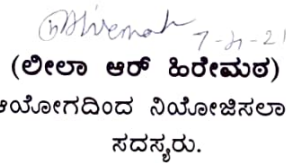 7-4-21
(ಲೀಲಾ ಆರ್ ಹಿರೇಮಠ)
ಆಯೋಗದಿಂದ ನಿಯೋಜಿಸಲಾ
ಸದಸ್ಯರು.